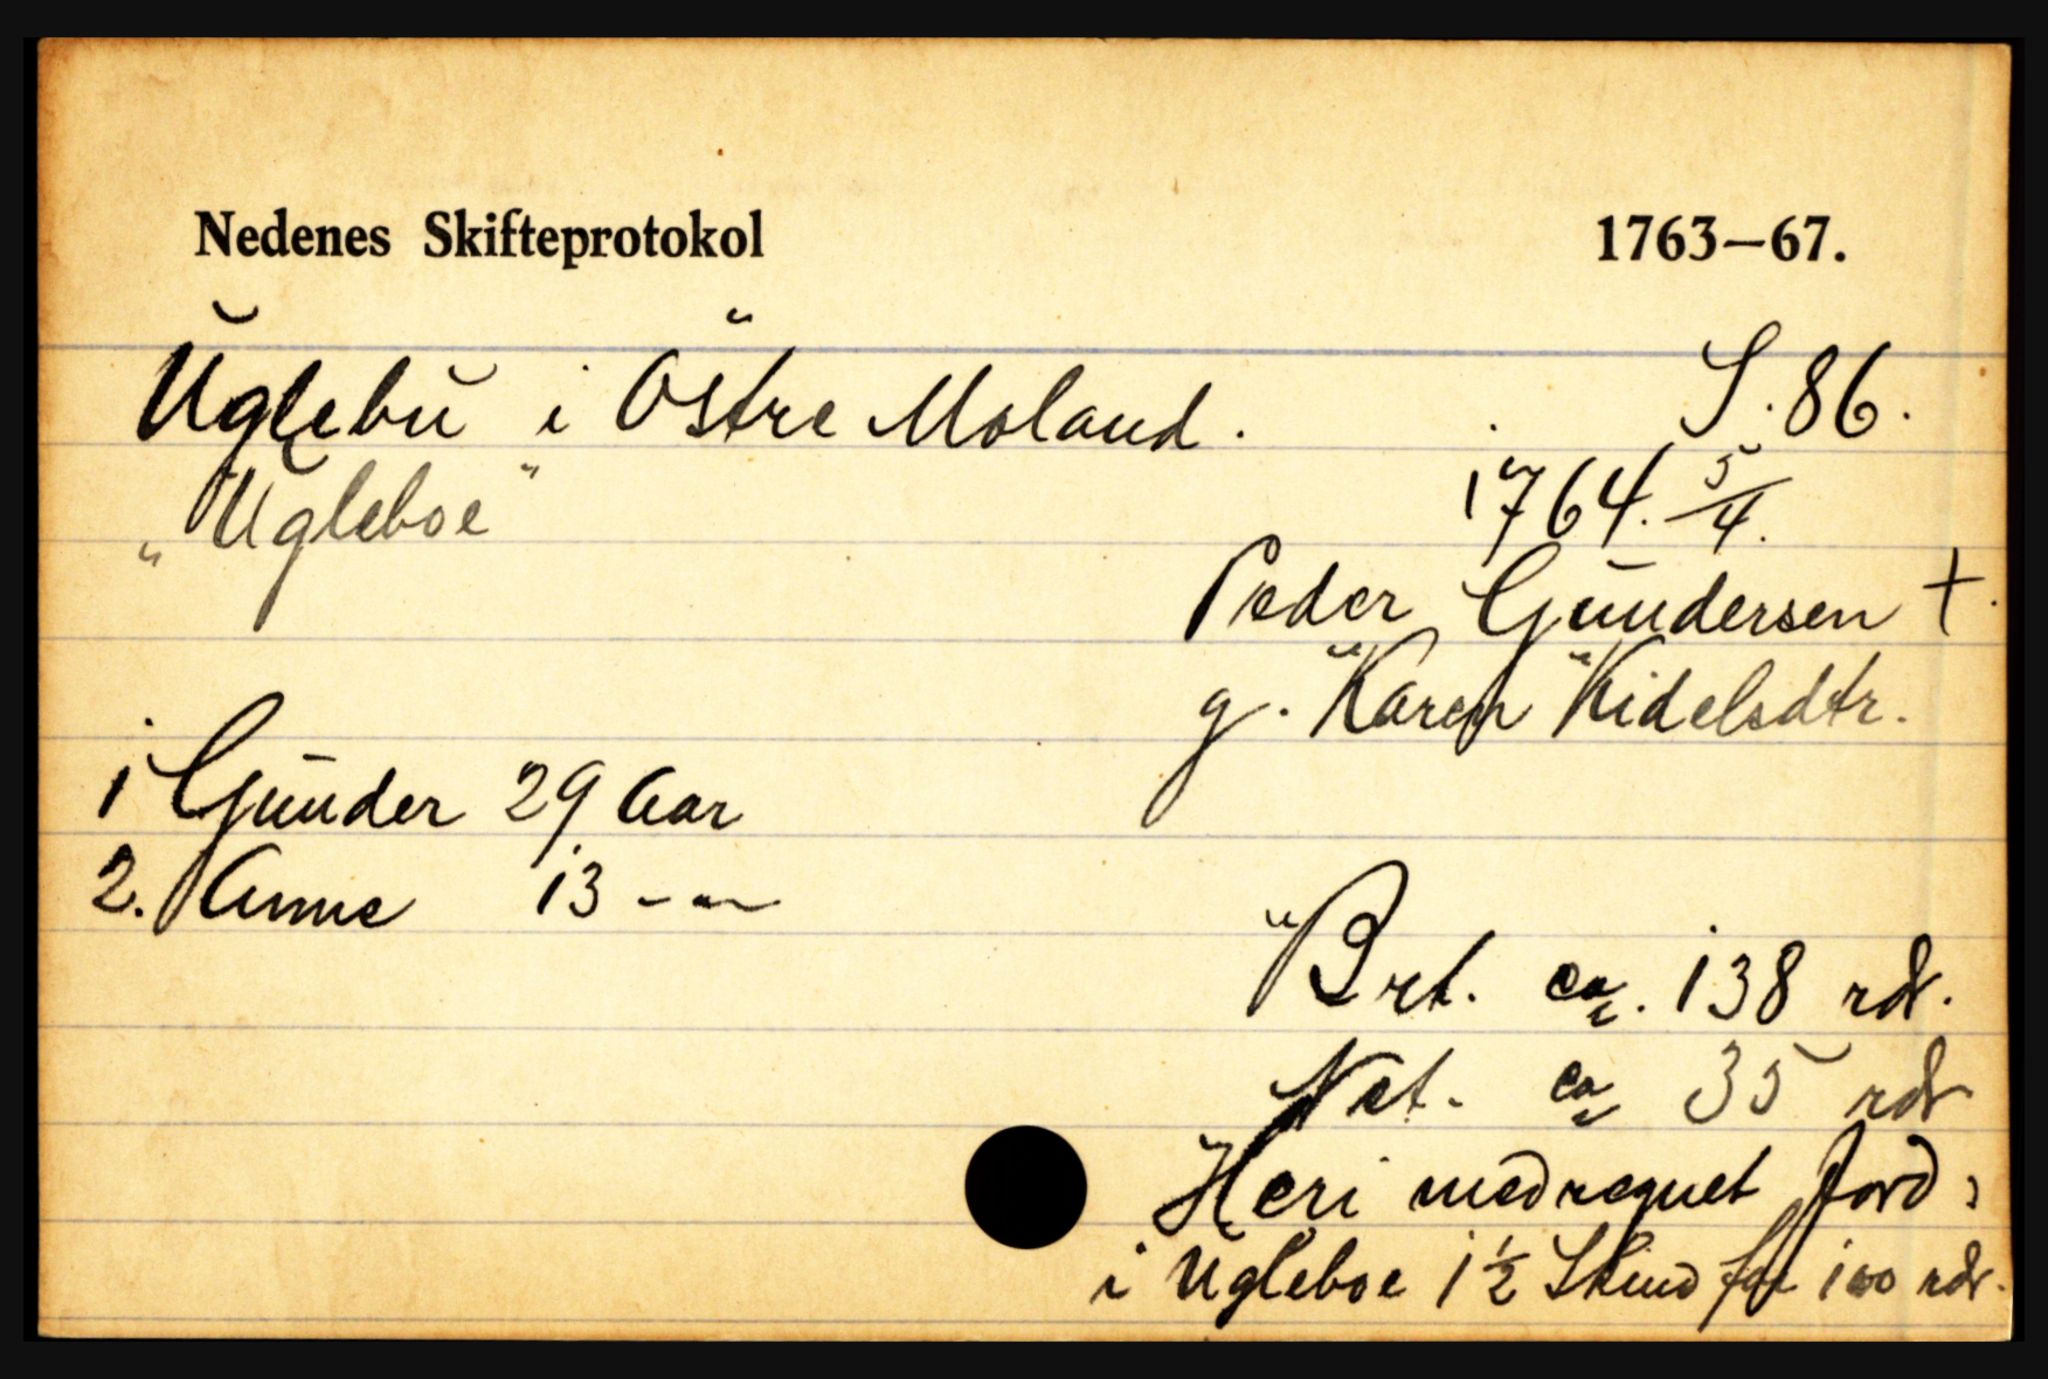 Nedenes Skifteprotokol 1763—67.
Uglebu i Östre Moland. S. 86.
„Ugleboe" 1764. 5/4.
Peder Gundersen +.
g. Karen Kidelsdtr.
1 Gunder 29 Aar
2. Anne 13 -"-
Brt. ca. 138 rdr.
Net. ca 35 rdr
Heri medregnet Jord:
i Ugleboe 1 1/2 Skind for 100 rdr.